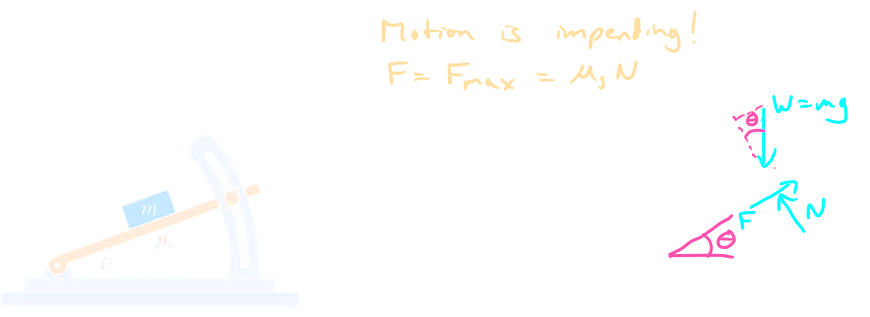 Motion is impending!
F = Fmax = μsN
W = mg
θ
F
N
θ
m
μs
θ